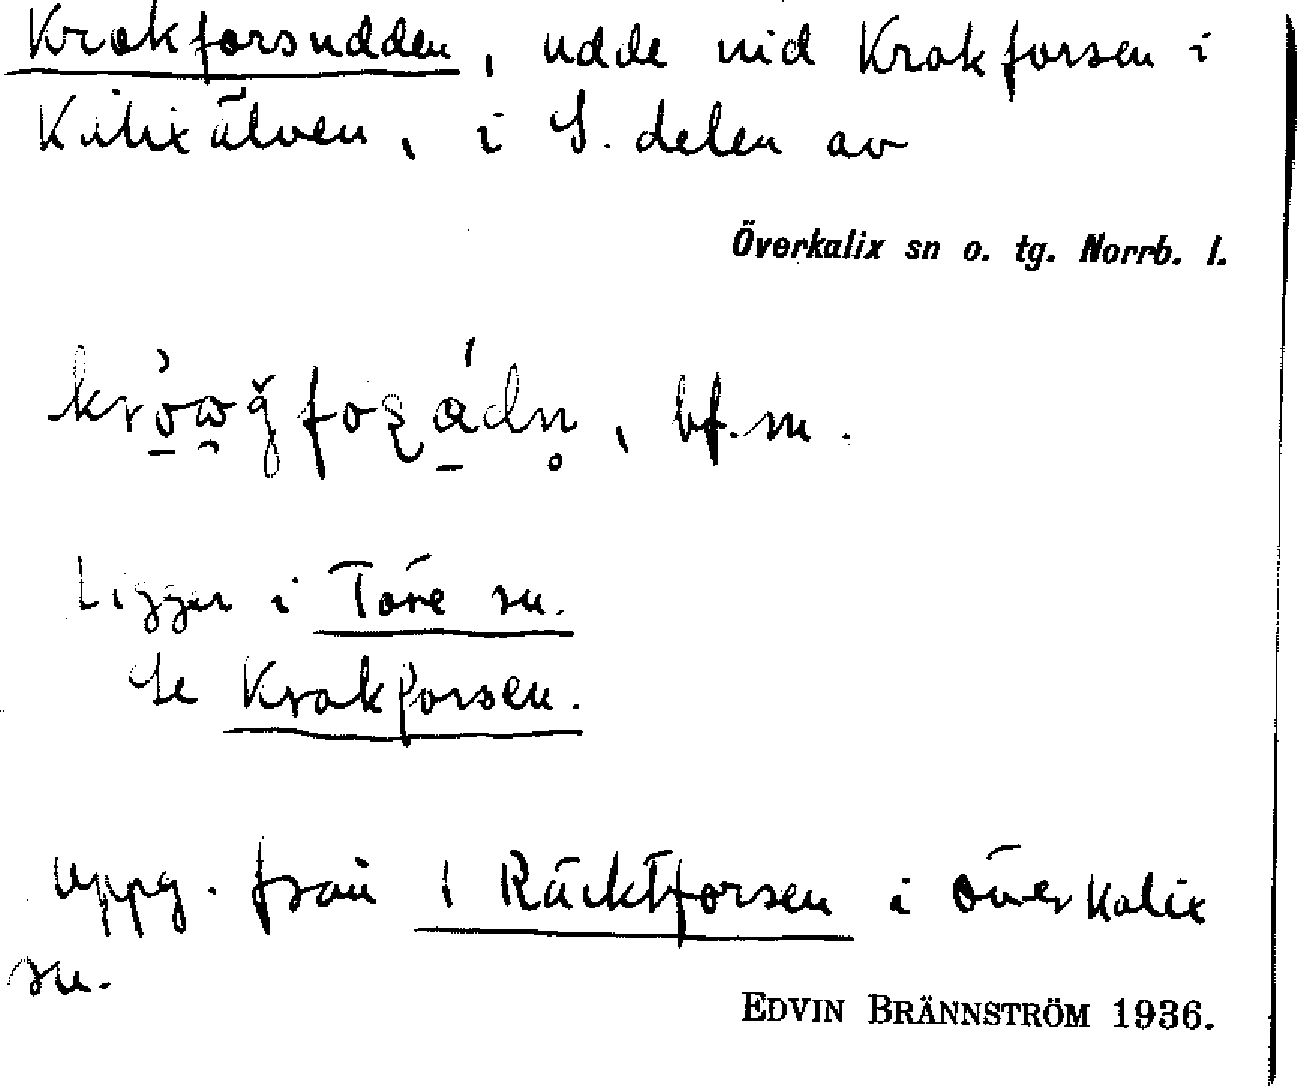 Krokforsudden, udde vid Krokforsen i
Kalixälven, i S. delen av
Överkalix sn o. tg. Norrb. l.
bf. m.
Ligger i Töre sn.
Se Krokforsen.
Uppg. från 1 Räcktforsen i Överkalix
sn.
EDVIN BRÄNNSTRÖM 1936.